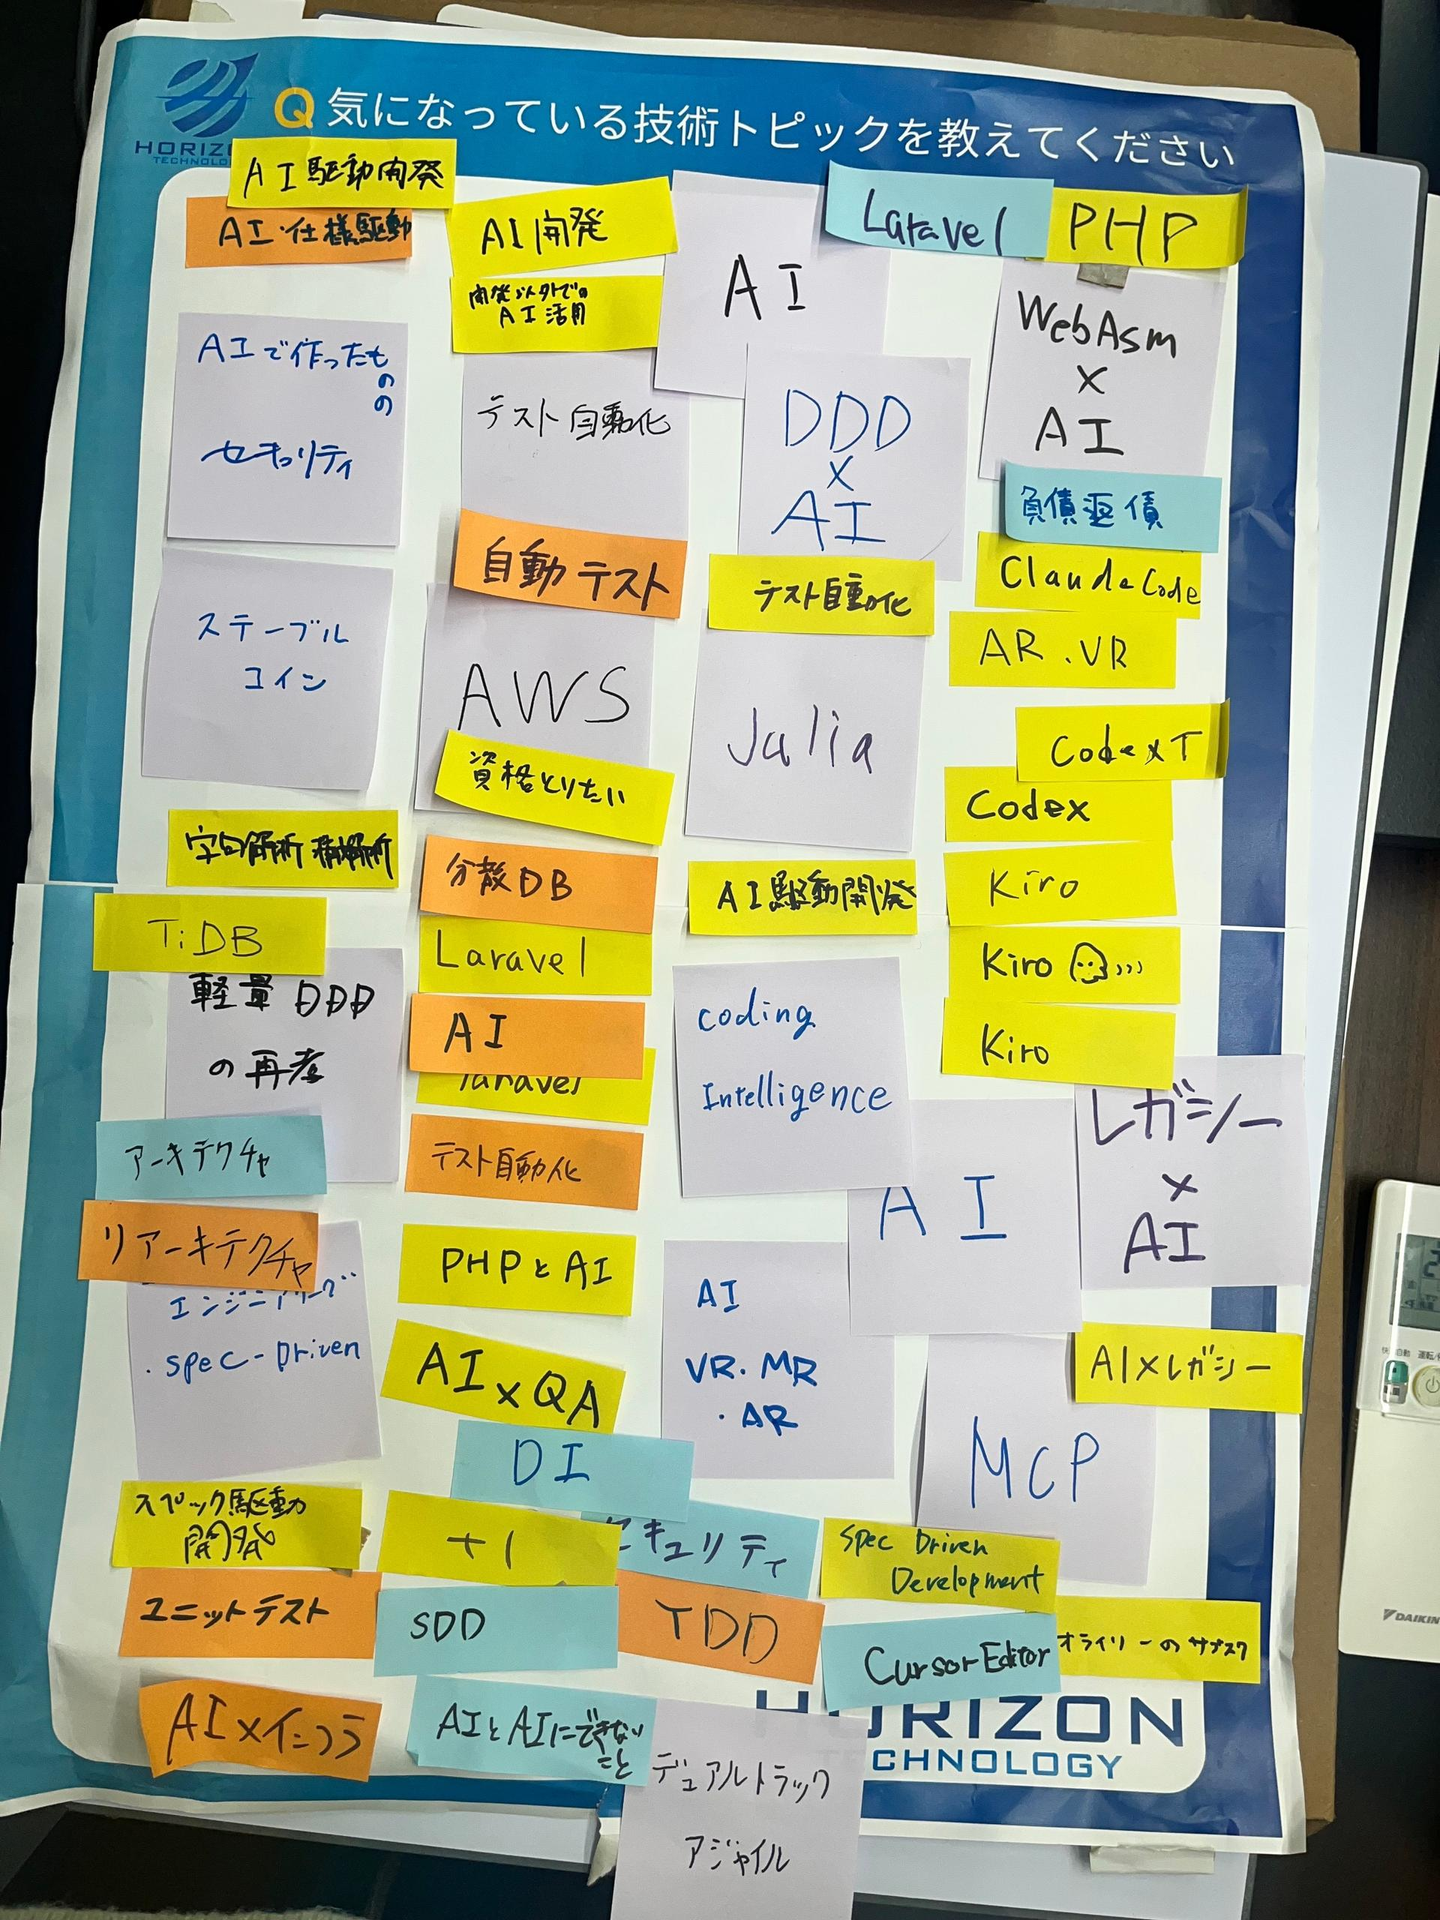 HORIZON
TECHNOLO
Q 気になっている技術トピックを教えてください
AI駆動開発
AI・仕様駆動
AI開発
開発以外での
AI活用
AI
Laravel
PHP
AIで作ったものの
セキュリティ
テスト自動化
DDD
×
AI
WebAsm
×
AI
負債返債
自動テスト
テスト自動化
Claude Code
AR.VR
ステーブル
コイン
AWS
資格とりたい
Julia
CodexT
Codex
字句解析
分散DB
AI駆動開発
Kiro
TiDB
軽量DDD
の再考
Laravel
AI
laravel
coding
Intelligence
Kiro
Kiro
アーキテクチャ
テスト自動化
AI
レガシー
×
AI
リアーキテクチャ
エンジニアリング
・spec-Driven
PHPとAI
AI×QA
AI
VR・MR
・AR
AI×レガシー
MCP
DI
スペック駆動
開発
+1
セキュリティ
Spec Driven
Development
ユニットテスト
SDD
TDD
CursorEditor
オライリーのサブスク
AI×インフラ
AIとAIにできない
こと
HORIZON
TECHNOLOGY
デュアルトラック
アジャイル
DAIKIN